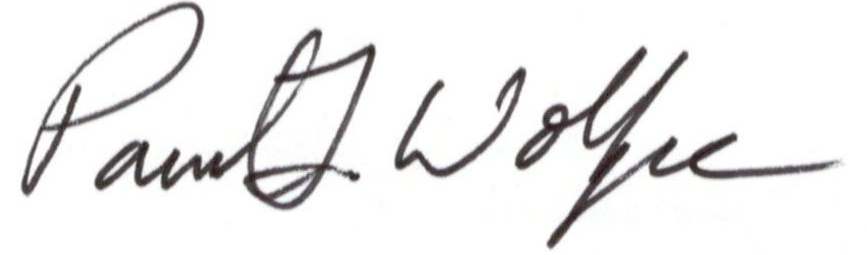 Paul J. Wolfe